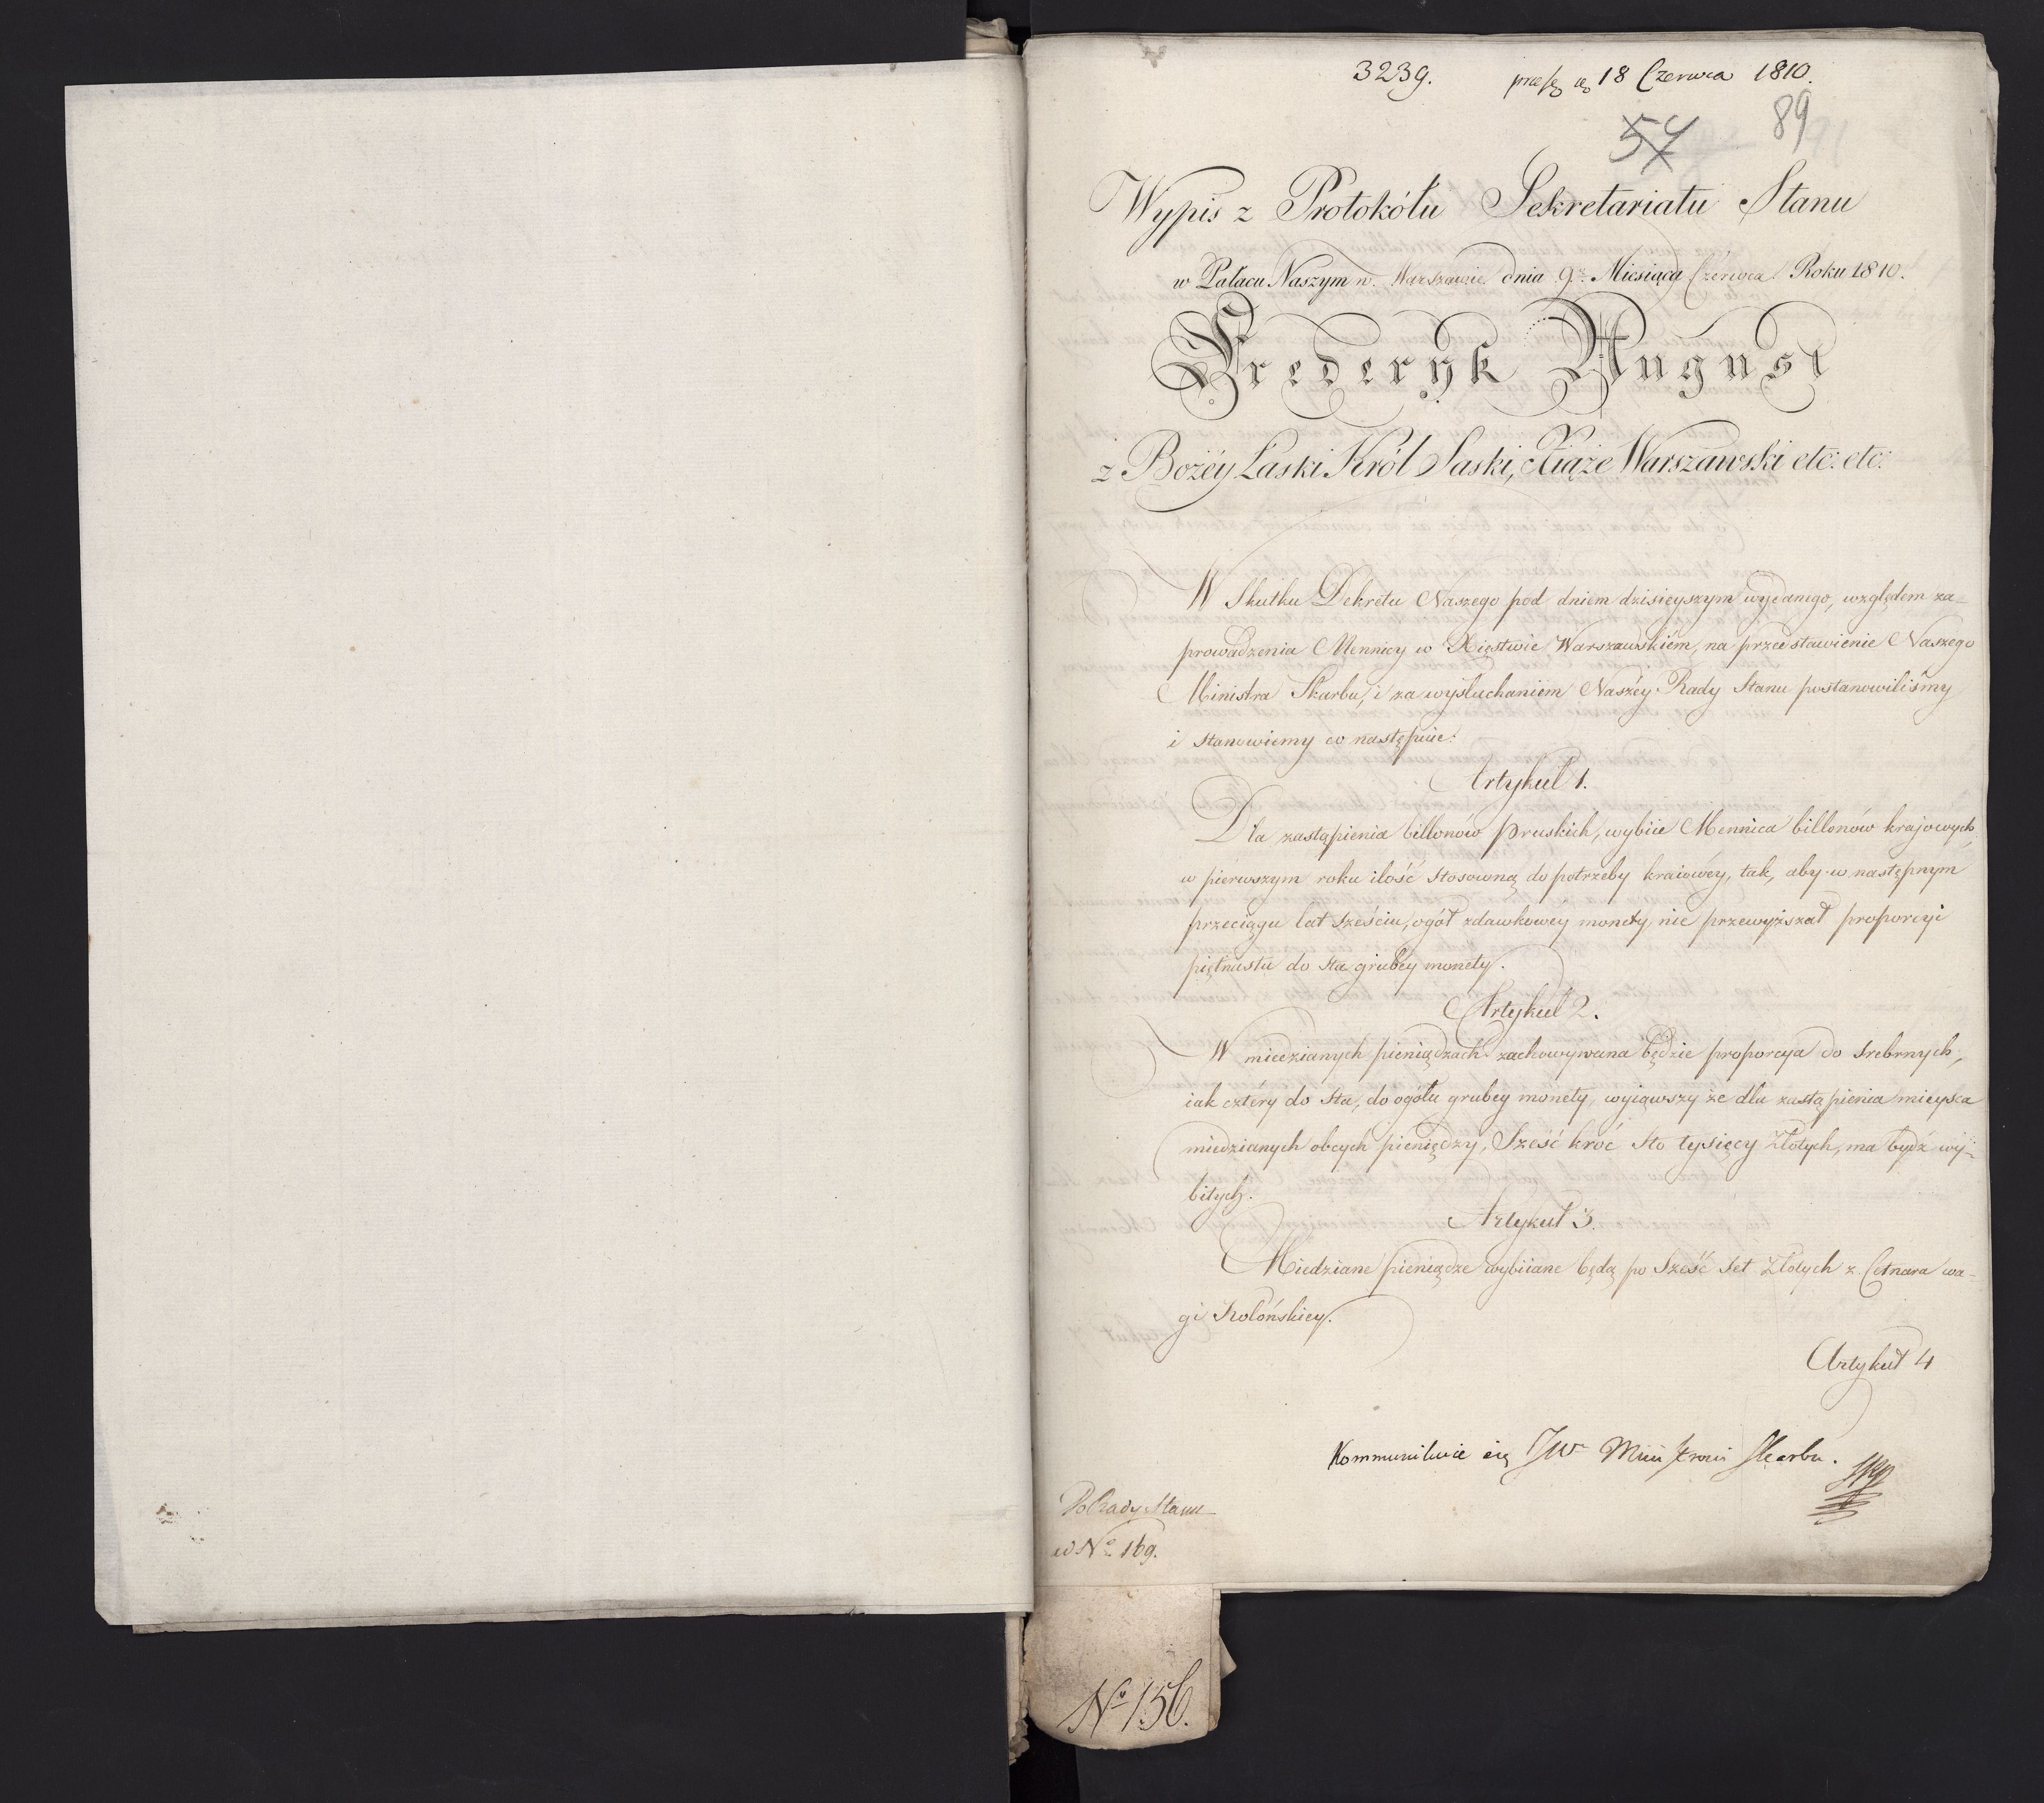 3239. præs. d. 18 Czerwca 1810.
57 89
Wypis z Protokółu Sekretariatu Stanu
w Pałacu Naszym w Warszawie dnia 9. Miesiąca Czérwca Roku 1810.
Frederyk August
z Bożéy Łaski Król Saski, Xiąże Warszawski etc: etc:
W Skutku Dekretu Naszego pod dniem dzisieyszym wydanego, względem za-
prowadzenia Mennicy w Xięstwie Warszawskiém, na przedstawienie Naszego
Ministra Skarbu, i za wysłuchaniem Naszéy Rady Stanu postanowiliśmy
i stanowiemy co następuie:
Artykuł 1.
Dla zastąpienia billonów pruskich, wybiie Mennica billonów krajowych,
w pierwszym roku ilość stosowną do potrzeby kraiowéy, tak, aby w następnym
przeciągu lat sześciu, ogół zdawkowéy monety, nie przewyższał proporcyi
piętnastu do sta grubéy monety.
Artykuł 2.
W miedzianych pieniądzach zachowywana będzie proporcya do srebrnych,
iak cztéry do sta, do ogółu grubey monety, wyiąwszy że dla zastąpienia mieysca
miedzianych obcych pieniędzy, Sześć kroć sto tysięcy Złotych, ma bydź wy-
bitych.
Artykuł 3.
Miedziane pieniądze wybiiane będą po sześć set Złotych z Cetnara wa-
gi Kolońskiey.
Artykuł 4
Kommunikuie się JW Ministrowi Skarbu.
Do Rady Stanu
w No. 169.
No. 156.